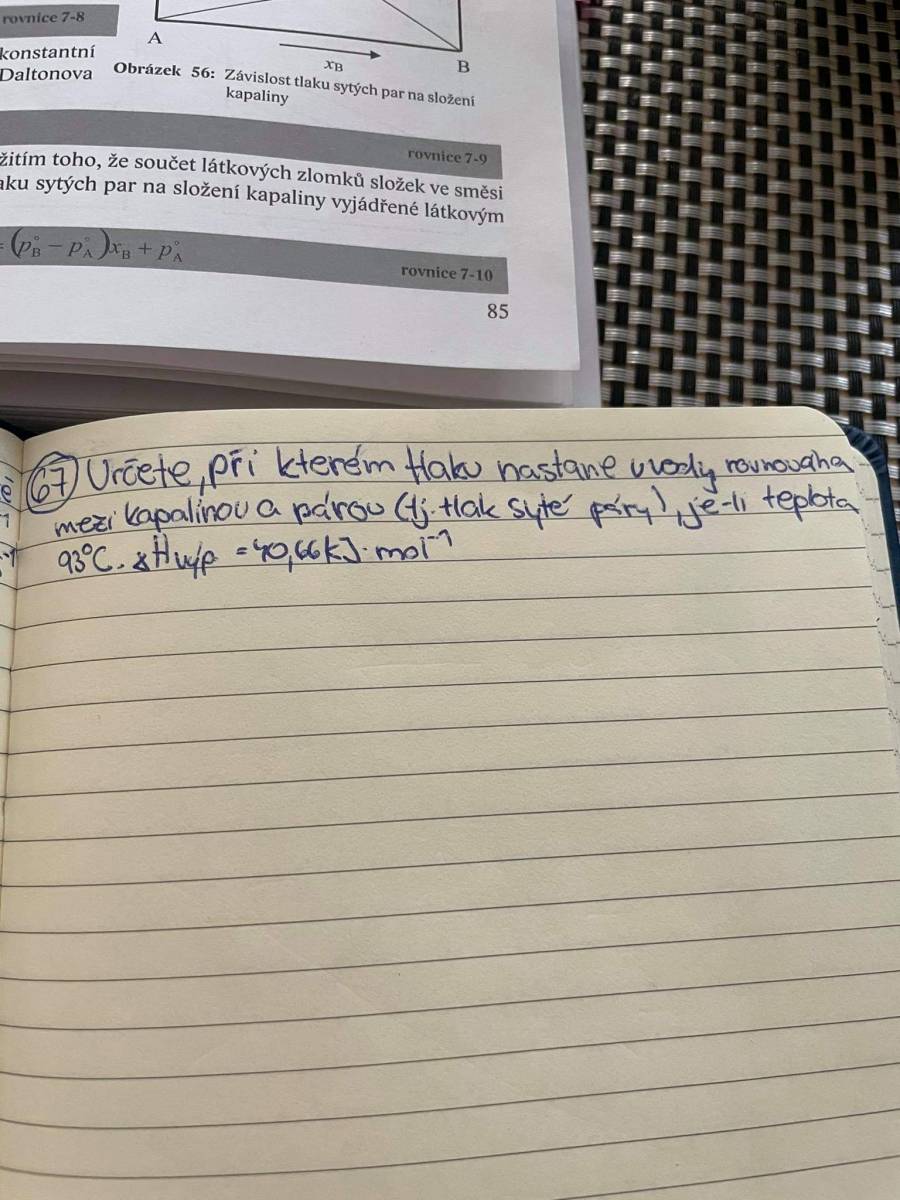 rovnice 7-8
konstantní
Daltonova
A
xB
B
Obrázek 56: Závislost tlaku sytých par na složení
kapaliny
rovnice 7-9
žitím toho, že součet látkových zlomků složek ve směsi
aku sytých par na složení kapaliny vyjádřené látkovým
= (p°B − p°A)xB + p°A
rovnice 7-10
85
67 Určete, při kterém tlaku nastane u vody rovnováha
mezi kapalinou a párou (tj. tlak syté páry), je-li teplota
93°C. ΔHvýp = 40,66 kJ·mol⁻¹